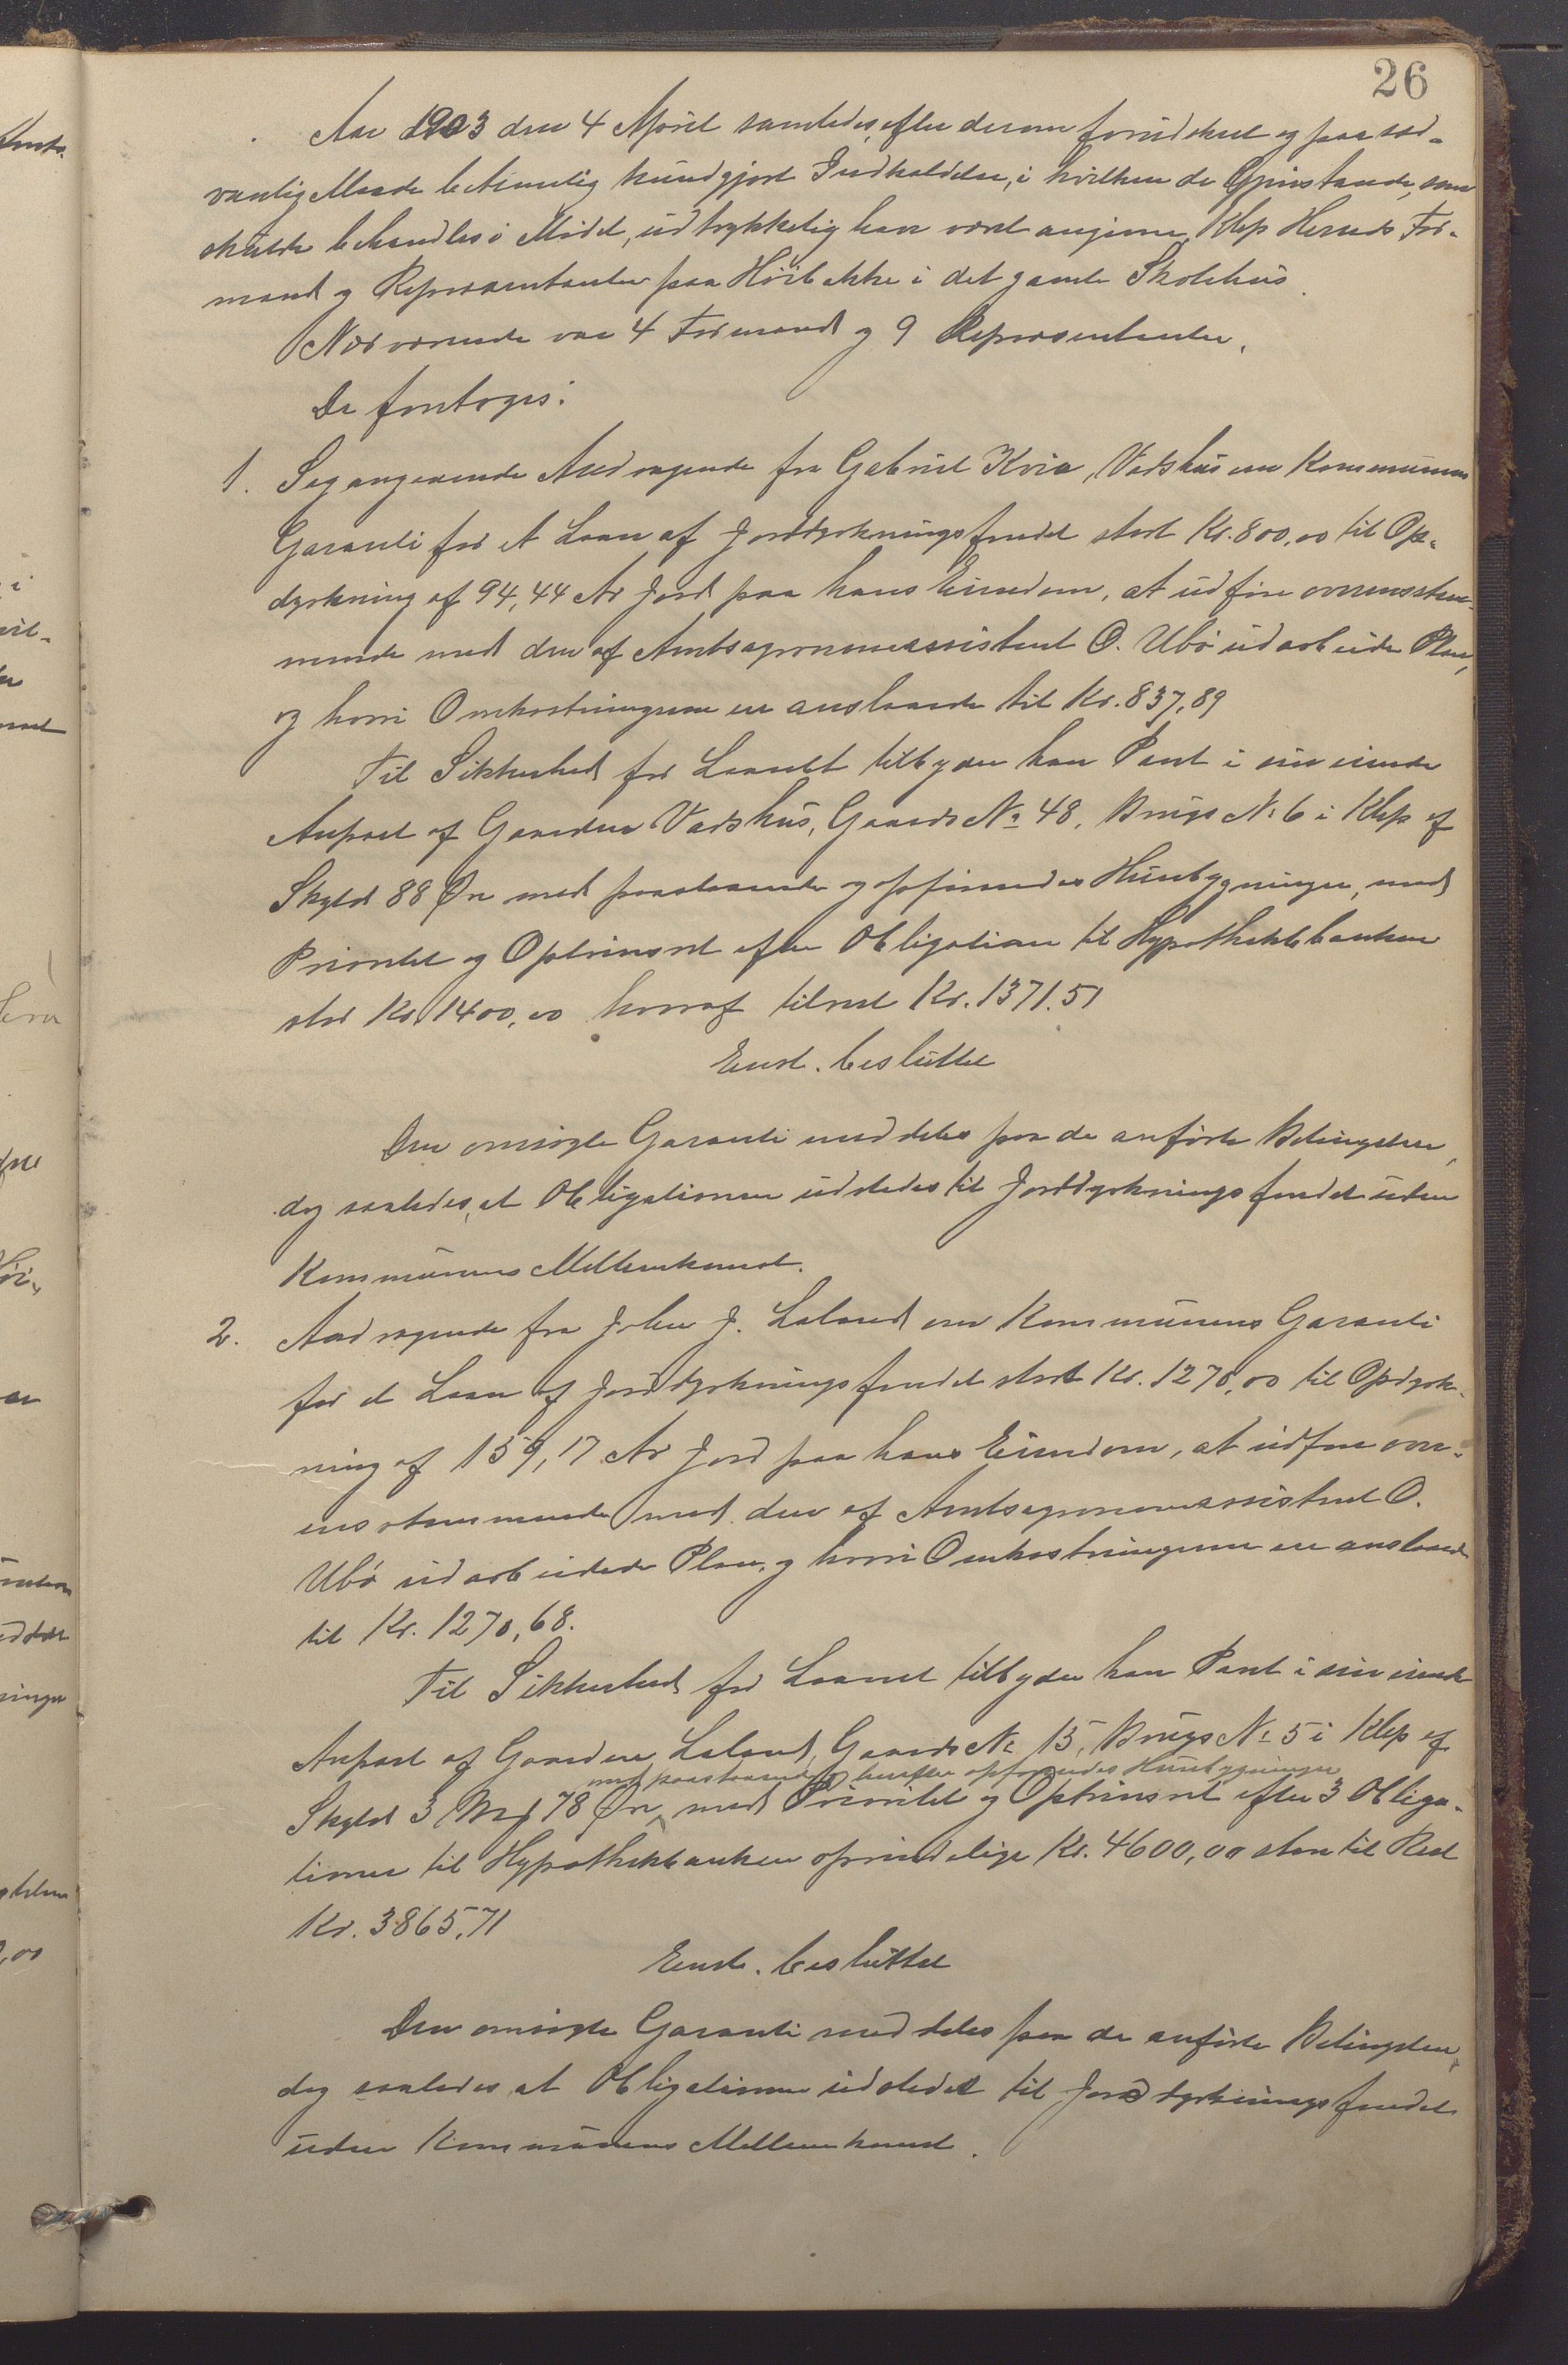 26
Aar 1903 den 4 April samledes, efter derom forudskeet og paa sæd-
vanlig Maade betimelig kundgjort Indkaldelse, i hvilken de Gjenstande, som
skulde behandles i Mødet, udtrykkelig have været angivne, Klep Herreds For-
mænd og Repræsentanter paa Höibakke i det gamle Skolehus.
Nærværende var 4 Formænd og 9 Repræsentanter.
Da foretoges:
1. Sag angaaende Andragende fra Gabriel Kvia, Vatshus om Kommunens
Garanti for et Laan af Jorddyrkningsfondet stort Kr. 800,00 til Op-
dyrkning af 94,44 Ar Jord paa hans Eiendom, at udføre overensstem-
mende med den af Amtsagronomassistent O. Ubö udarbeide Plan,
og hvori Omkostningerne er anslaaede til Kr. 837,89
Til Sikkerhed for Laanet tilbyder han Pant i sin eiende
Anpart af Gaarden Vatshus, Gaards No 48, Brugs No 6 i Klep af
Skyld 88 Øre med paastaaende og opförendes Husebygninger, med
Prioritet og Optrinsret efter Obligation til Hypothekbanken
stor Kr. 1400,00 hvoraf tilrest Kr. 1371.51
Enst. besluttet
Den omsögte Garanti meddeles paa de anförte Betingelser,
dog saaledes, at Obligationen udstedes til Jorddyrkningsfondet uden
Kommunens Mellemkomst.
2. Andragende fra John J. Laland om Kommunens Garanti
for et Laan af Jorddyrkningsfondet stort Kr. 1270,00 til Opdyrk-
ning af 159,17 Ar Jord paa hans Eiendom, at udføre over-
ensstemmende med den af Amtsagronomassistent O.
Ubö udarbeidede Plan, og hvori Omkostningerne er anslaaede
til Kr. 1270,68.
Til Sikkerhed for Laanet tilbyder han Pant i sin eiende
Anpart af Gaarden Laland, Gaards No 15, Brugs No 5 i Klep af
med paastaaende og herefter opförendes Husebygninger
Skyld 3 Mrk 78 Øre, med Prioritet og Optrinsret efter 3 Obliga-
tioner til Hypothekbanken oprindelige Kr. 4600,00 store til Rest
Kr. 3865,71
Enst. besluttet
Den omsögte Garanti meddeles paa de anförte Betingelser,
dog saaledes at Obligationen udstedes til Jorddyrkningsfondet
uden Kommunens Mellemkomst.